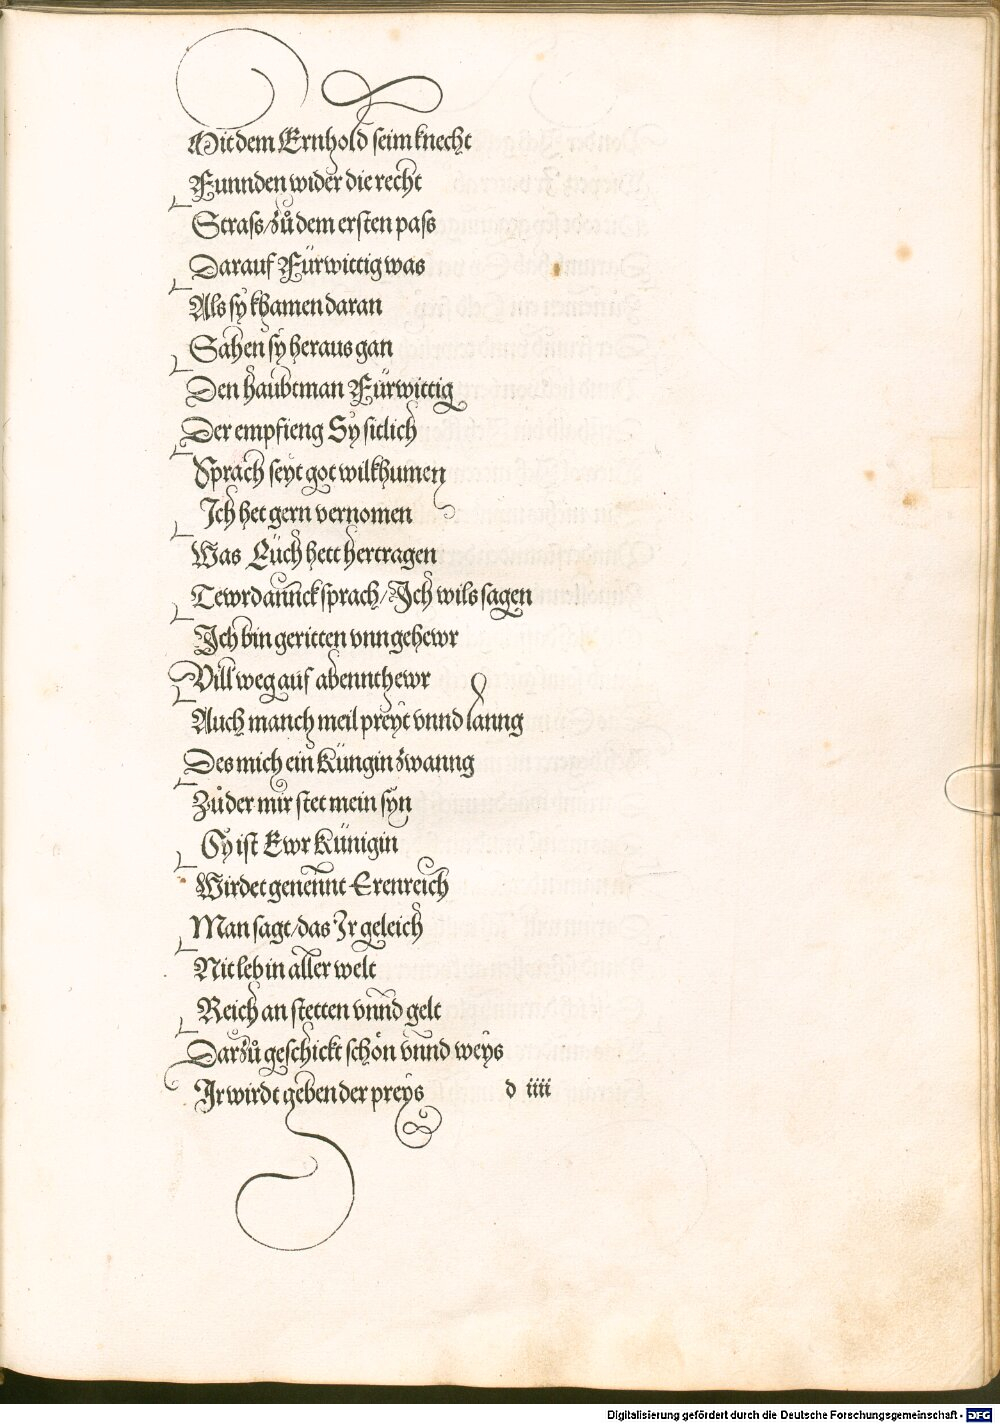 Mit dem Ernhold seim knecht
Funnden wider die recht
Strass/zů dem ersten pass
Darauf Fürwittig was
Als sy khamen daran
Sahen sy heraus gan
Den haubtman Fürwittig
Der empfieng Sy sitlich
Sprach seyt got wilkhumen
Ich het gern vernomen
Was Eüch hett hertragen
Tewrdannck sprach/Ich wils sagen
Ich bin geritten vnngehewr
Vill weg auf abennthewr
Auch manch meil preyt vnnd lanng
Des mich ein Küngin zwanng
Zů der mir stet mein syn
Sy ist Ewr Künigin
Wirdet genennt Erenreich
Man sagt/das Ir geleich
Nit leb in aller welt
Reich an stetten vnnd gelt
Darzů geschickt schön vnnd weys
Ir wirdt geben der preys d iiii
Digitalisierung gefördert durch die Deutsche Forschungsgemeinschaft - DFG